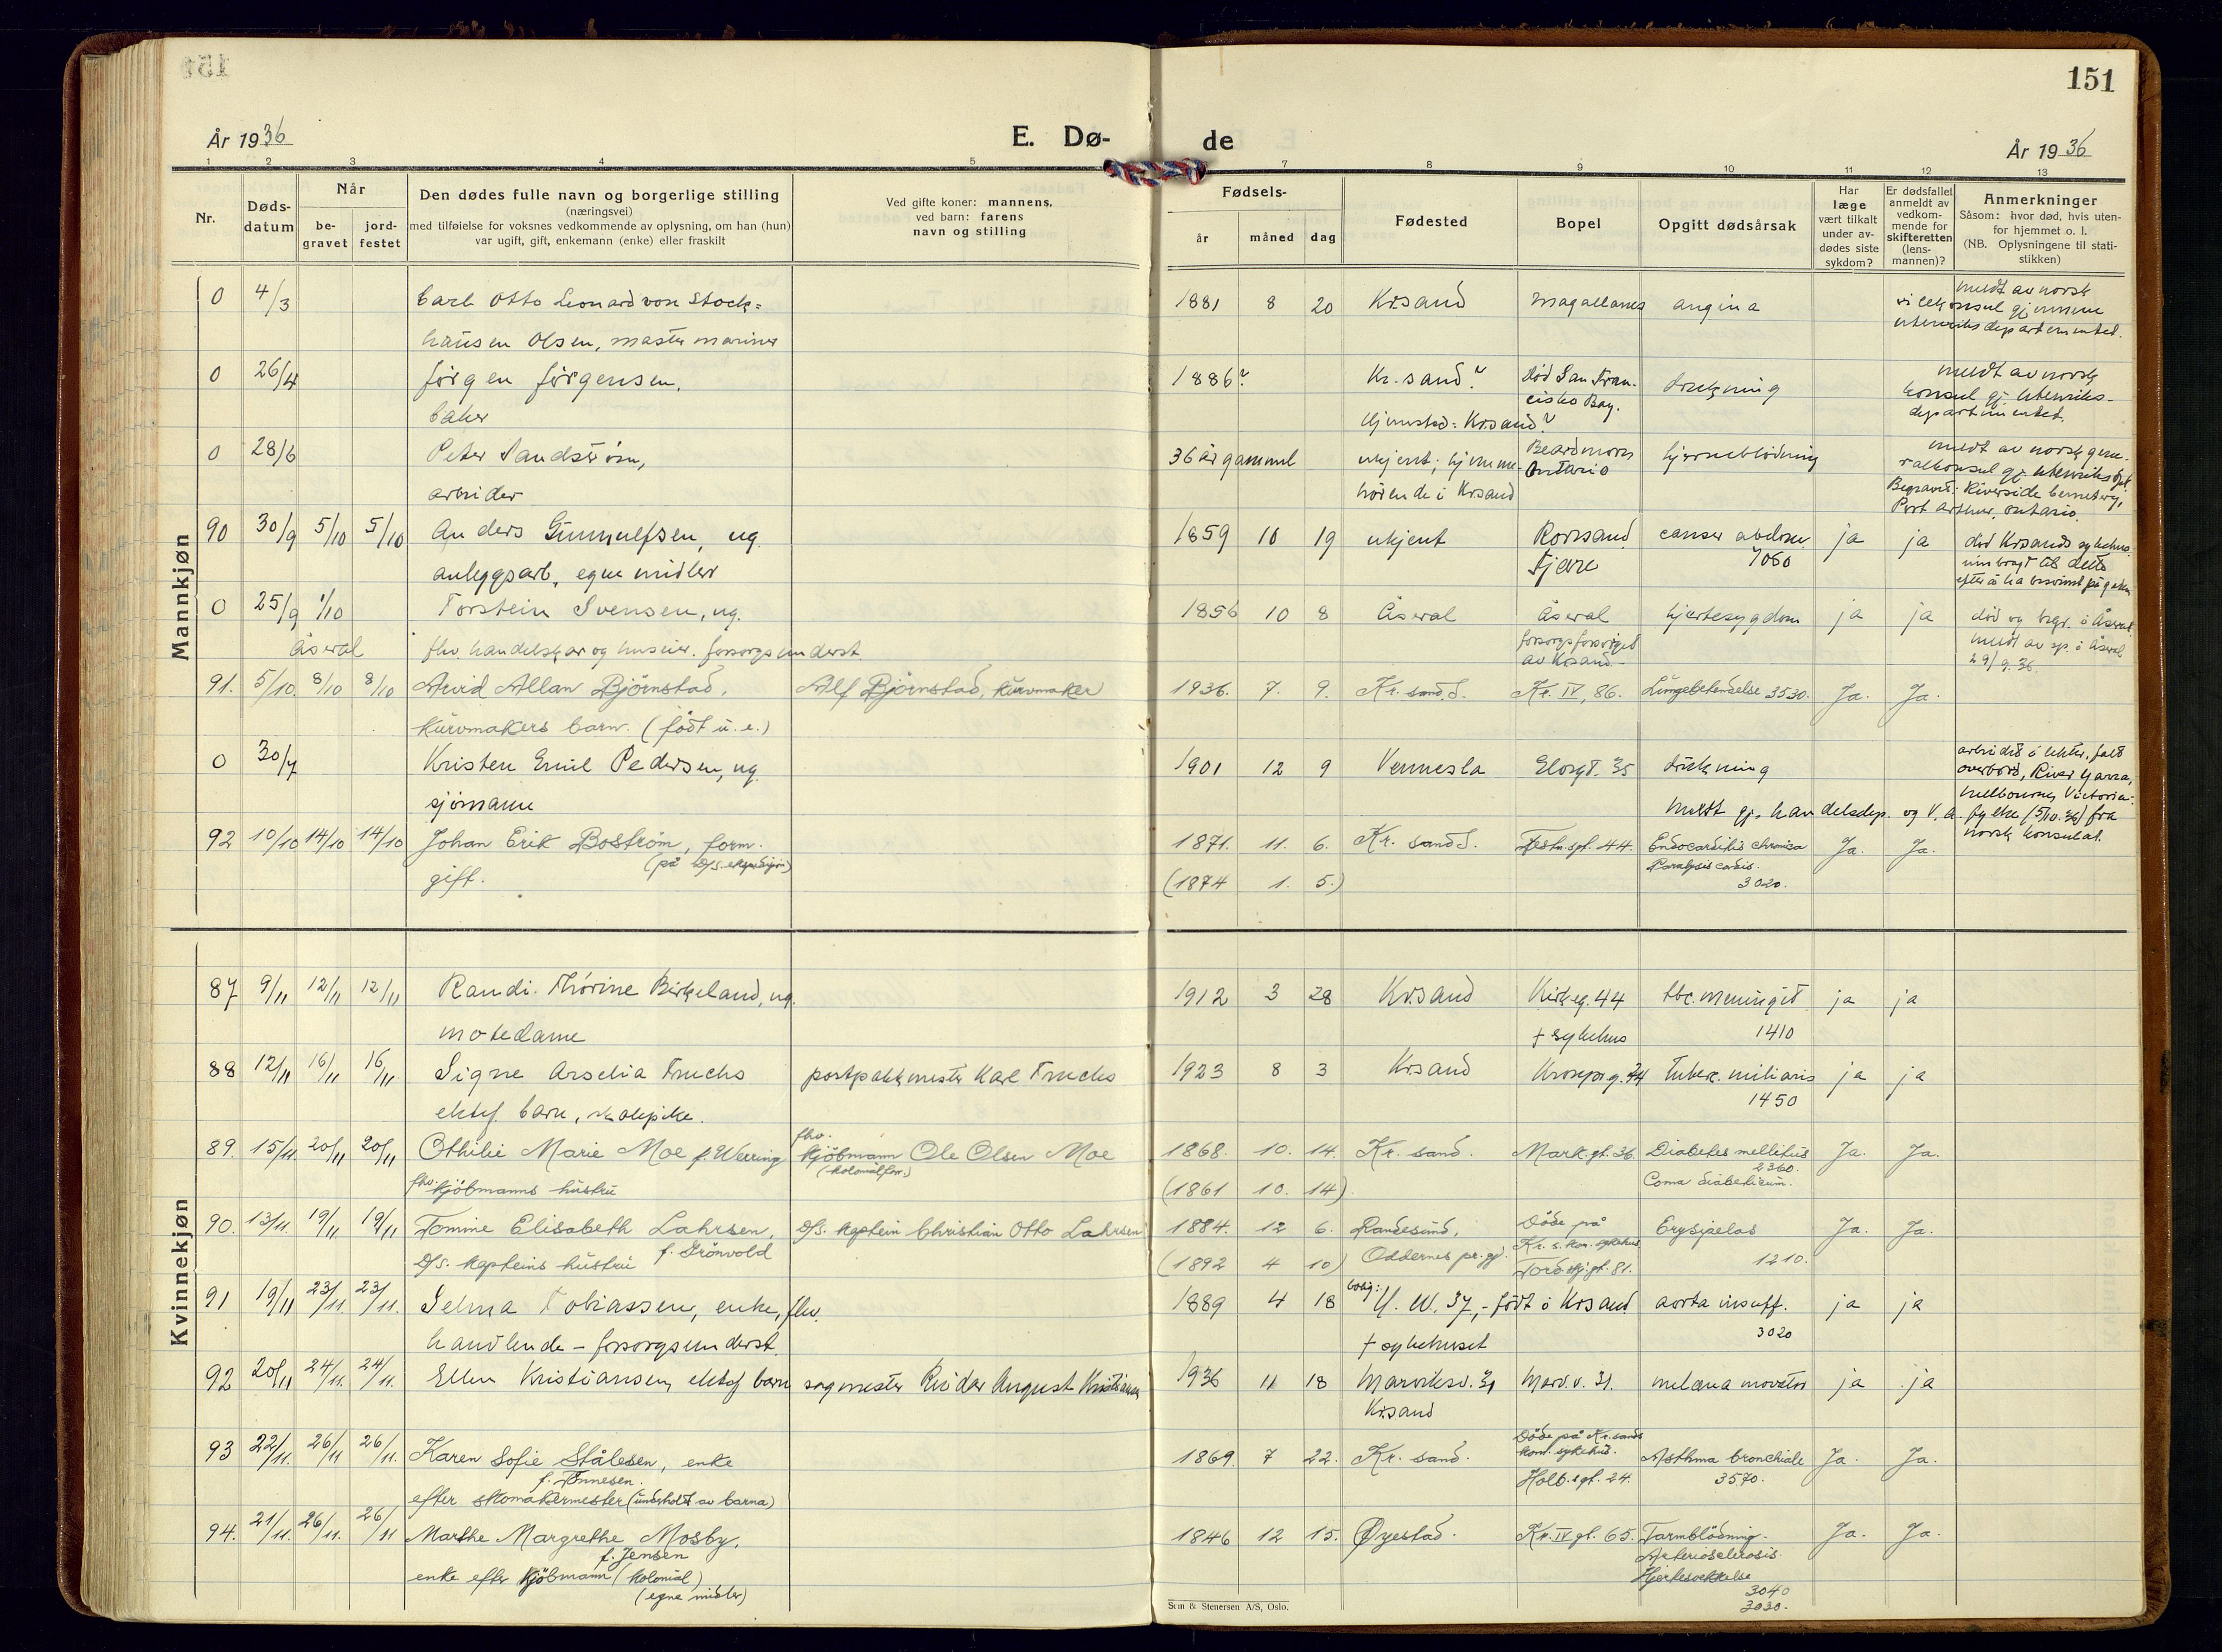 151
År 1936
E. Dø-
de
År 1936
1 2 3 4 5 7 8 9 10 11 12 13
Nr.
Døds-
datum
Når
be-
gravet
jord-
festet
Den dødes fulle navn og borgerlige stilling
(næringsvei)
med tilføielse for voksnes vedkommende av oplysning, om han (hun)
var ugift, gift, enkemann (enke) eller fraskilt
Ved gifte koner: mannens,
ved barn: farens
navn og stilling
Fødsels-
år måned dag
Fødested
Bopel
Opgitt dødsårsak
Har
læge
vært tilkalt
under av-
dødes siste
sykdom?
Er dødsfallet
anmeldt av
vedkom-
mende for
skifteretten
(lens-
mannen)?
Anmerkninger
Såsom: hvor død, hvis uten-
for hjemmet o. l.
(NB. Oplysningene til stati-
stikken)
Mannkjøn
0 4/3 Carl Otto Leonard von Stock=
hausen Olsen, master mariner
1881 8 20 Kr.sand Magallanes angina
meldt av norsk
vicekonsul gjennem
utenriksdepartementet.
0 26/4 Jörgen Jörgensen,
baker
1886? Kr. sand? död San Fran-
cisko Bay. drukning
Hjemsted: Kr.sand?
meldt av norsk
konsul gj. utenriks-
departementet.
0 28/6 Peter Sandström,
arbeider
36 år gammel ukjent; hjemme-
hörende i Kr.sand
Beardmore
Ontario
hjerneblödning
meldt av norsk gene-
ralkonsul gj. utenriksdpt.
Begravet: Riverside Cemetery,
Port Arthur, Ontario.
90 30/9 5/10 5/10 Anders Gunnulfsen, ug.
anleggsarb., egne midler
1859 10 19 ukjent
Fjære
cancer abdom.
7060
ja ja
död Kr.sands sykehus
0 25/9 1/10 Torstein Svensen, ug.
Åseral fhv. handelskar og husier. forsorgsunderst.
1856 10 8 Åseral Åseral
forsorgsforsörget
av Kr.sand.
hjertesygdom ja ja
död og begr. i Åseral
meldt av sp. i Åseral
29/9.36
91. 5/10. 8/10 8/10 Arvid Allan Björnstad,
kurvmakers barn. (födt u. e.)
Alf Björnstad, kurvmaker
1936. 7. 9. Kr. sand, S. Kr. IV, 86. Lungebetendelse 3530. Ja. Ja.
0 30/7 Kristen Emil Pedersen, ug.
sjömann
1901 12 9 Vennesla Elvegt. 35 drukning
meldt gj. handelsdep. og V. A. fylke (5/10.36) fra
norsk konsulat.
arbeidet i lekter, falt
overbord, River Yarra,
Melbourne, Victoria.
92 10/10 14/10 14/10 Johan Erik Boström, form.
(på D/S. ekspedisjon)
gift.
1871. 11. 6. Kr. sand S. Festn.gt. 44. Endocarditis chronica
Paralysis cordis.
3020.
Ja. Ja.
(1874 1. 5.)
Kvinnekjøn
87 9/11 12/11 12/11 Randi Thorine Birkeland, ug.
motedame
1912 3 28 Kr.sand Kirkeg. 44
† sykehus
tbc. meningit
1410
ja ja
88 12/11 16/11 16/11. Signe Arselia Fuchs
ektef. barn, skolepike.
postpakkmester Karl Fuchs
1923 8 3 Kr.sand Tuberc. miliaris
1450
ja ja
89. 15/11. 20/11 20/11 Othilie Marie Moe f. Werring
fhv. kjöbmanns hustru
fhv.
kjöbmann Ole Olsen Moe
(kolonialforr.)
1868. 10. 14. Kr. sand. Mark.gt. 36. Diabetes mellitus
2360.
Coma diabeticum.
Ja. Ja.
(1861 10. 14)
90. 13/11. 19/11 19/11 Tomine Elisabeth Lahrsen,
f. Grönvold
D/S. kapteins hustru
D/S. kaptein Christian Otto Lahrsen
1884. 12 6. Randesund,
(1892 4 10) Oddernes pr.gj.
Döde på
Kr. s. kom. sykehus
Tordenskj.gt. 81.
Erysipelas
1210.
Ja. Ja.
91 19/11 23/11. 23/11. Selma Tobiassen, enke, fhv.
handlende – forsorgsunderst.
1889 4 18 bolig: 37, - födt i Kr.sand
† sykehuset
aorta insuff.
3020
ja ja
92 20/11 24/11. 24/11. Ellen Kristiansen, ektef barn
sagmester Reidar August Kristiansen
1936 11 18 Marviksv. 31
Kr.sand
Marv.v. 31. melæna ja ja
93 22/11. 26/11 26/11. Karen Sofie Stålesen, enke
f. Tönnesen.
efter skomakermester (underholdt av barna)
1869. 7 22. Kr. sand.
Döde på Kr.sands
kom. sykehus.
Holb.egt. 24.
Asthma bronchiale
3570.
Ja. Ja.
94. 21/11. 26/11. 26/11 Marthe Margrethe Mosby,
f. Jensen
enke efter kjöbmann (kolonial)
(egne midler)
1846 12 15. Øyestad. Kr. IV gt. 65. Tarmblödning.
Arteriosclerosis.
Hjertesvekkelse
3040
3030.
Ja. Ja.
Sem & Stenersen A/S, Oslo.